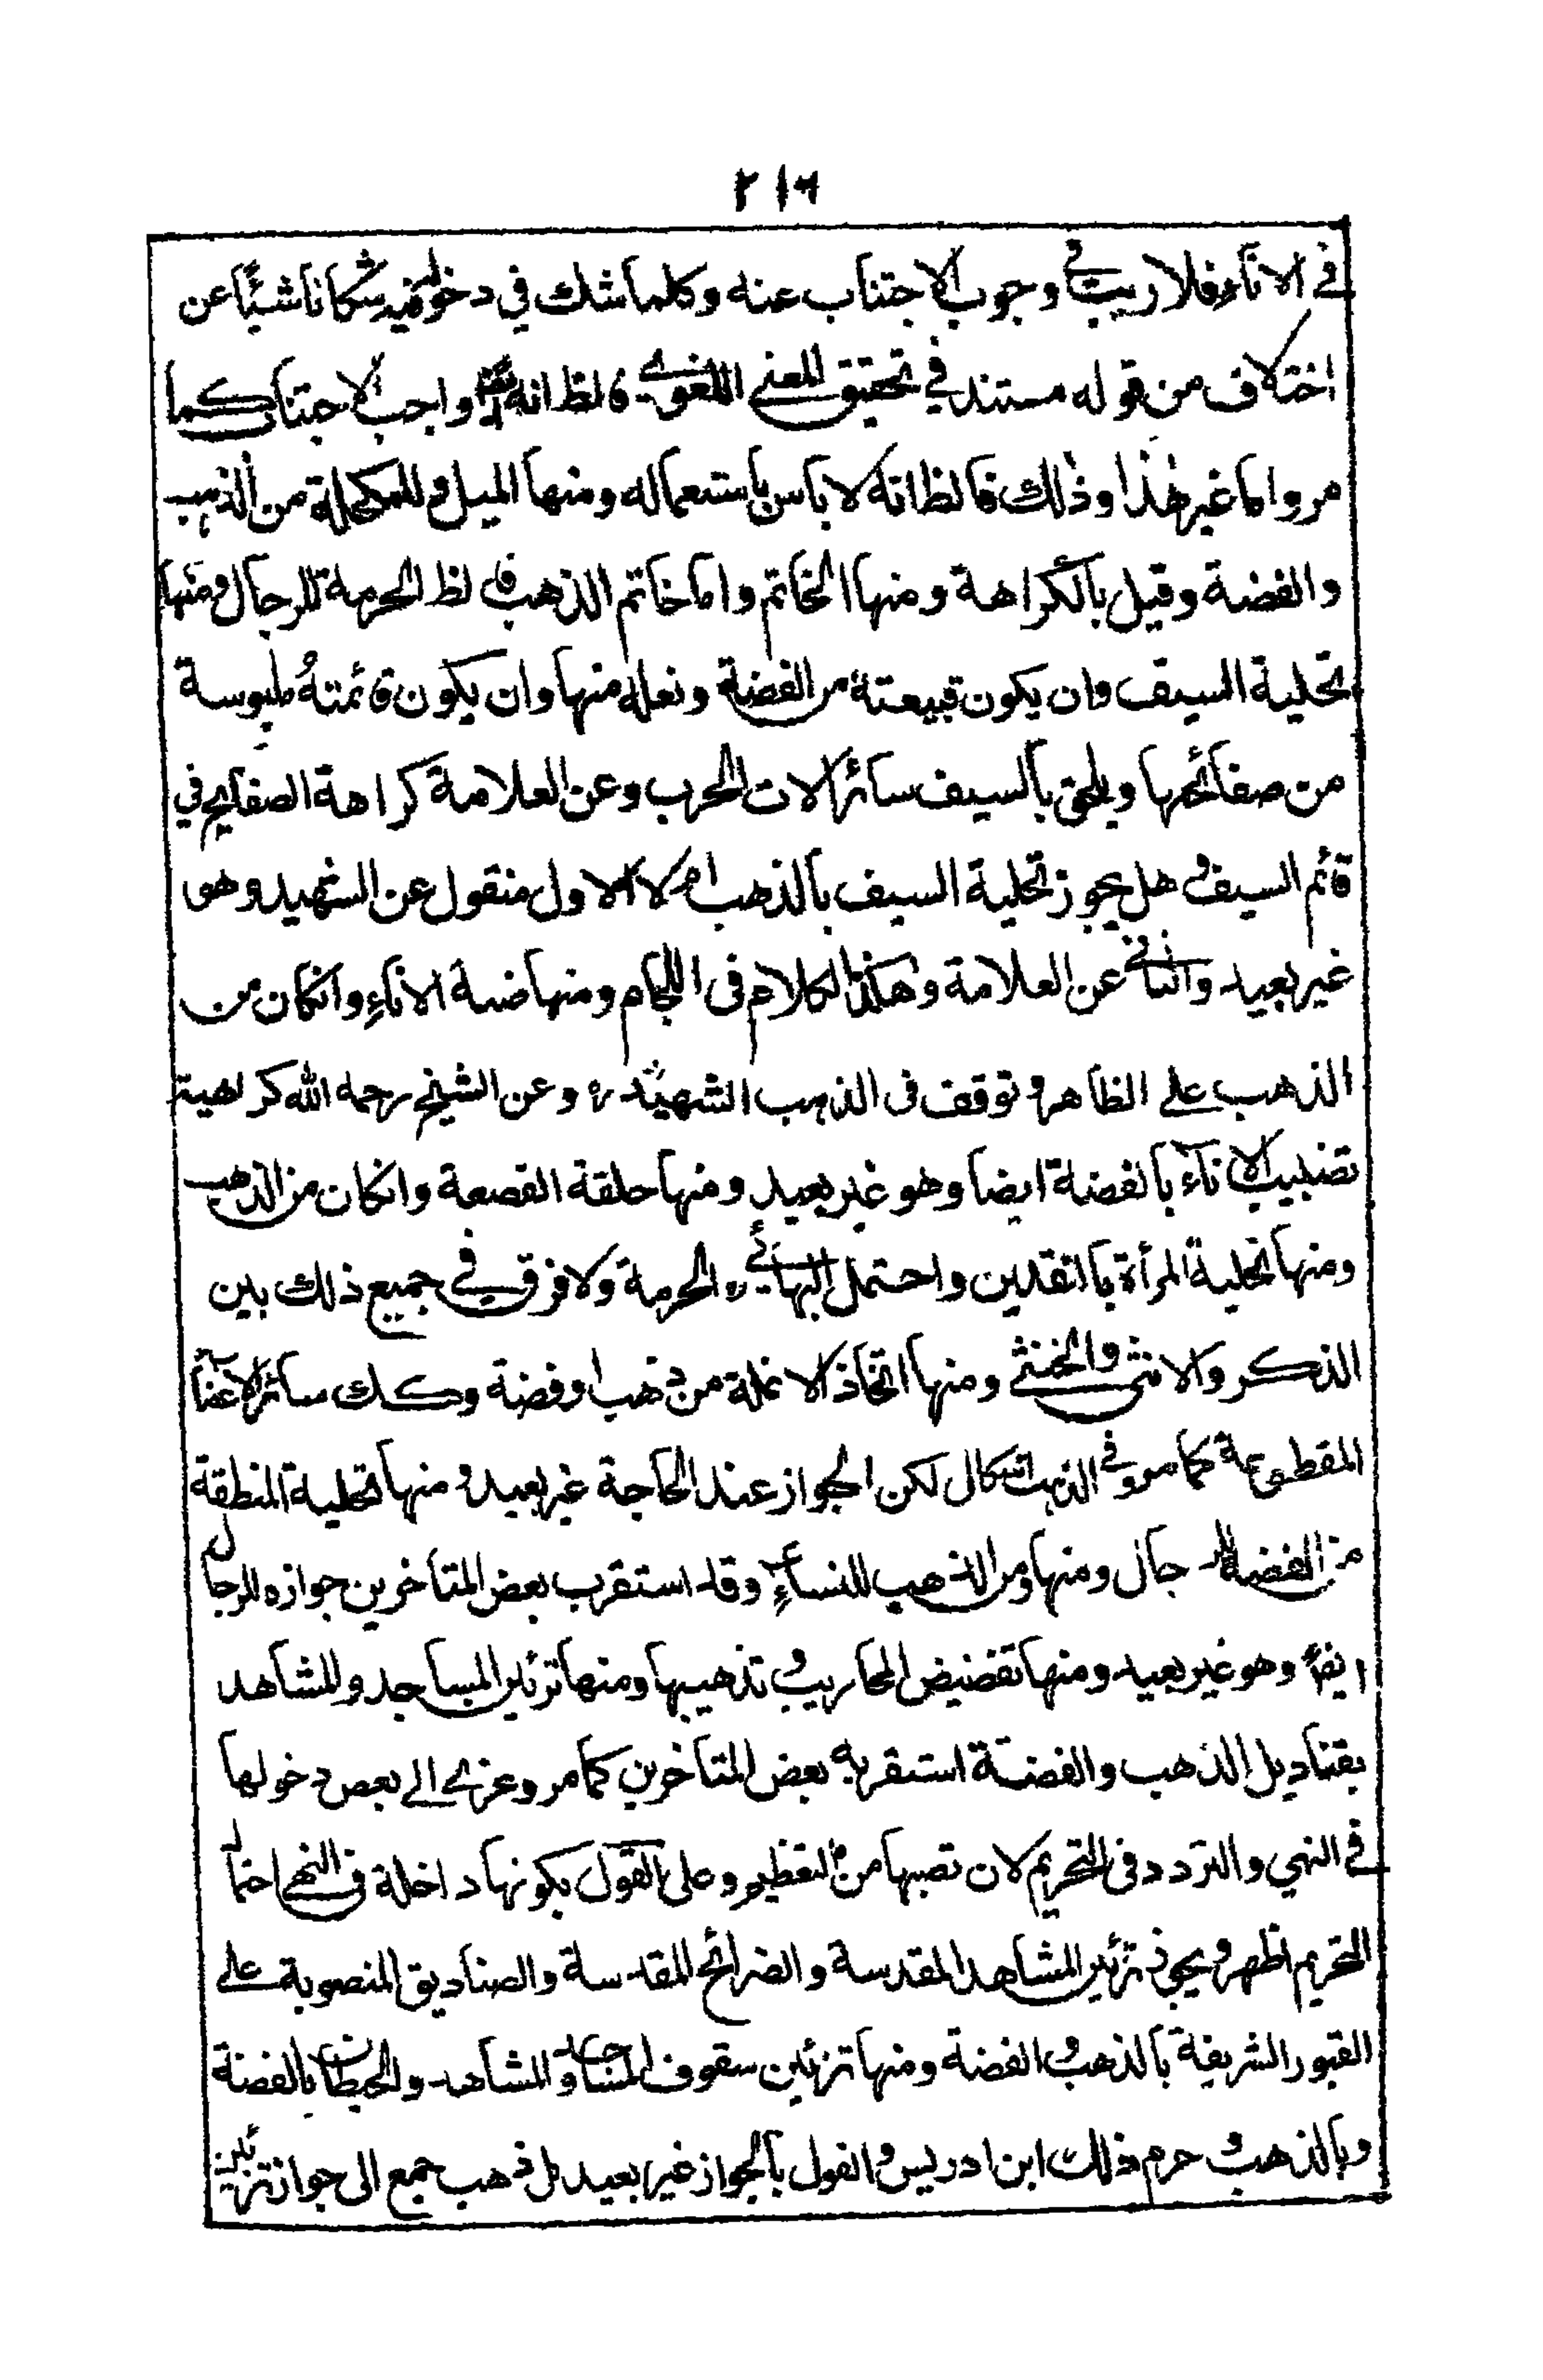 ٢١٦
في الاناء فلا ريب في وجوب الاجتناب عنه وكلما شك في دخوله فيه شكا ناشئًا عن
اختلاف من قوله مستند في تحقيق المعنى اللغوي فالظ انه ايضا واجب الاجتناب كما
مر واما غير هذا وذلك فالظ انه لا باس باستعماله ومنها الميل والمكحلة من الذهب
والفضة وقيل بالكراهة ومنها الخاتم واما خاتم الذهب فالظ الحرمة للرجال ومنها
تحلية السيف وان يكون قبيعته من الفضة ونعله منها وان يكون قائمته ملبوسة
من صفائحها ويلحق بالسيف سائر الات الحرب وعن العلامة كراهة الصفايح في
قائم السيف وهل يجوز تحلية السيف بالذهب ام لا الاول منقول عن الشهيد وهو
غير بعيد والثاني عن العلامة وهكذا الكلام في اللجام ومنها ضبة الاناءِ وانكان من
الذهب على الظاهر وتوقف في الذهب الشهيد ره وعن الشيخ رحمه الله كراهية
تضبيب الاناء بالفضة ايضا وهو غير بعيد ومنها حلقة القصعة وانكان من الذهب
ومنها تحلية المرأة بالنقدين واحتمل البهائي ره الحرمة ولا فرق في جميع ذلك بين
الذكر والانثى والخنثى ومنها اتخاذ الانملة من ذهب او فضة وكك سائر الاعضاء
المقطوعة كما مر وفي الذهب اشكال لكن الجواز عند الحاجة غير بعيد ومنها تحلية المنطقة
من الفضة للرجال ومنها ومن الذهب للنساءِ وقد استقرب بعض المتاخرين جوازه للرجال
ايضا وهو غير بعيد ومنها تفضيض المحاريب وتذهيبها ومنها تزئين المساجد والمشاهد
بقناديل الذهب والفضة استقر به بعض المتاخرين كما مر وعزى الى بعض دخولها
في النهي والتردد في التحريم لان نصبها من التعظيم وعلى القول بكونها داخلة في النهى احتمال
التحريم اظهر ويجوز تزئين المشاهد المقدسة والضرائح المقدسة والصناديق المنصوبة على
القبور الشريفة بالذهب والفضة ومنها تزئين سقوف المساجد والمشاهد والحيطان بالفضة
وبالذهب وحرم ذلك ابن ادريس والقول بالجواز غير بعيد بل ذهب جمع الى جواز تزئين